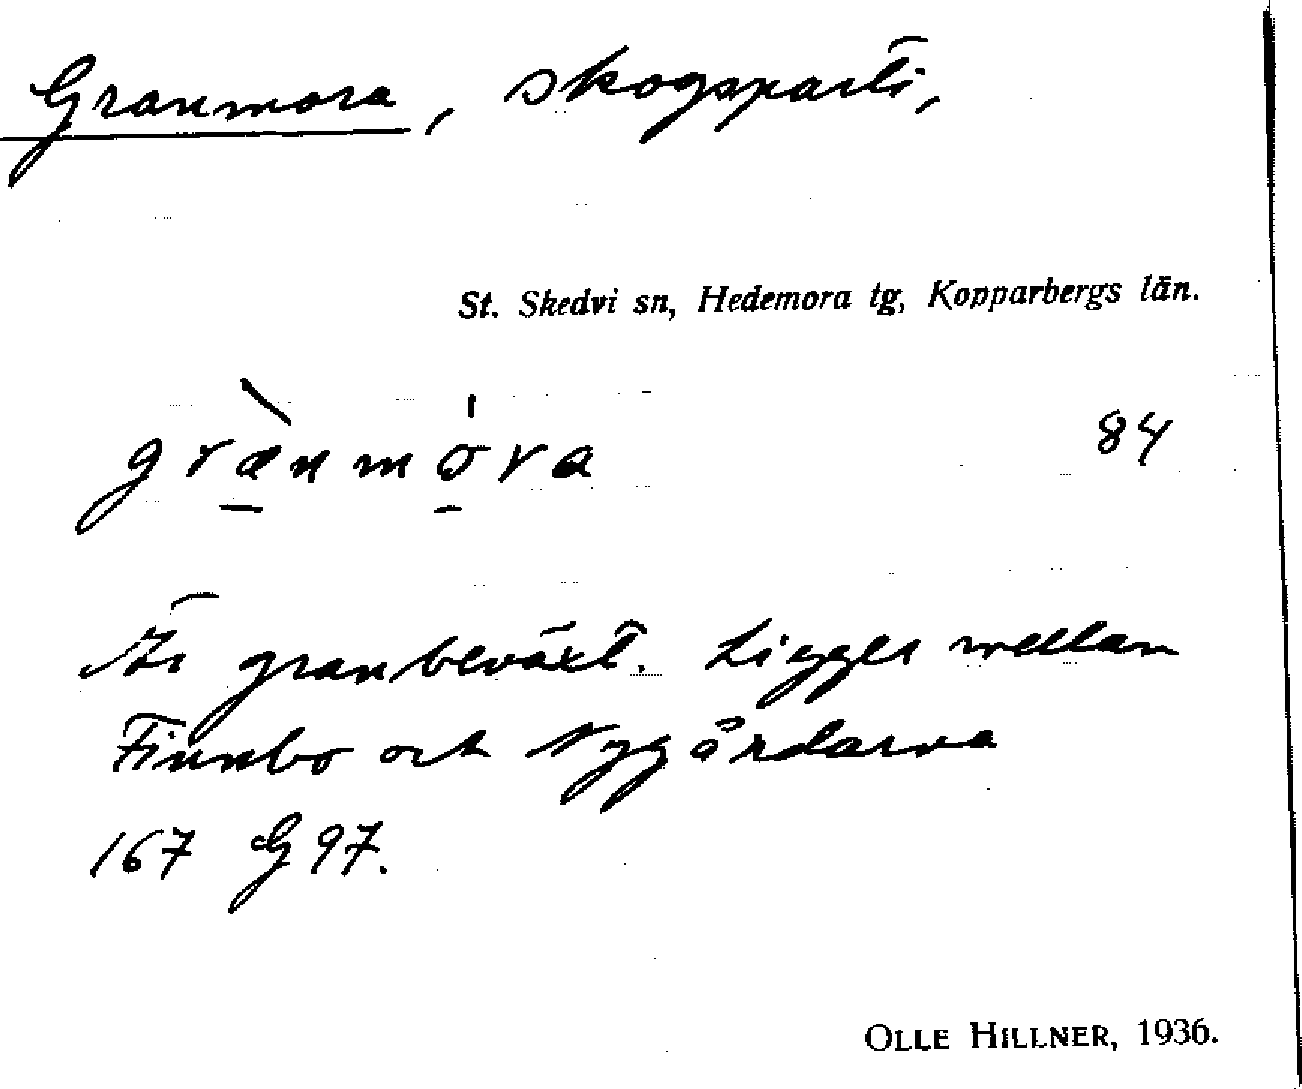 Granmora, skogsparti,
St. Skedvi sn, Hedemora tg, Kopparbergs län.
græ̀nmóra 84
Är granbeväxt. Ligger mellan
Finnbo och Nygårdarna
167 G 97.
OLLE HILLNER, 1936.